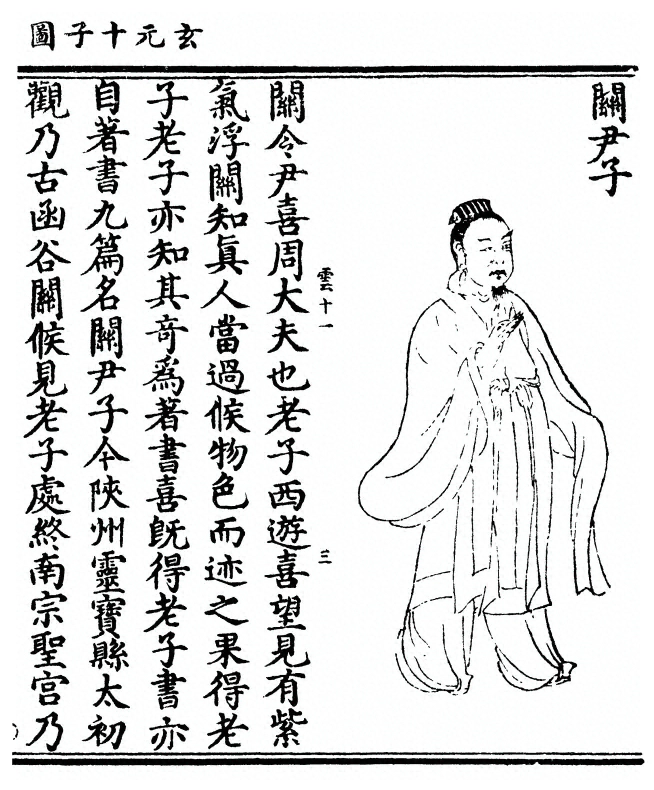 玄元十子圖
關尹子
雲十一
三
關令尹喜周大夫也老子西遊喜望見有紫
氣浮關知真人當過候物色而迹之果得老
子老子亦知其奇為著書喜既得老子書亦
自著書九篇名關尹子今陝州靈寶縣太初
觀乃古函谷關候見老子處終南宗聖宮乃